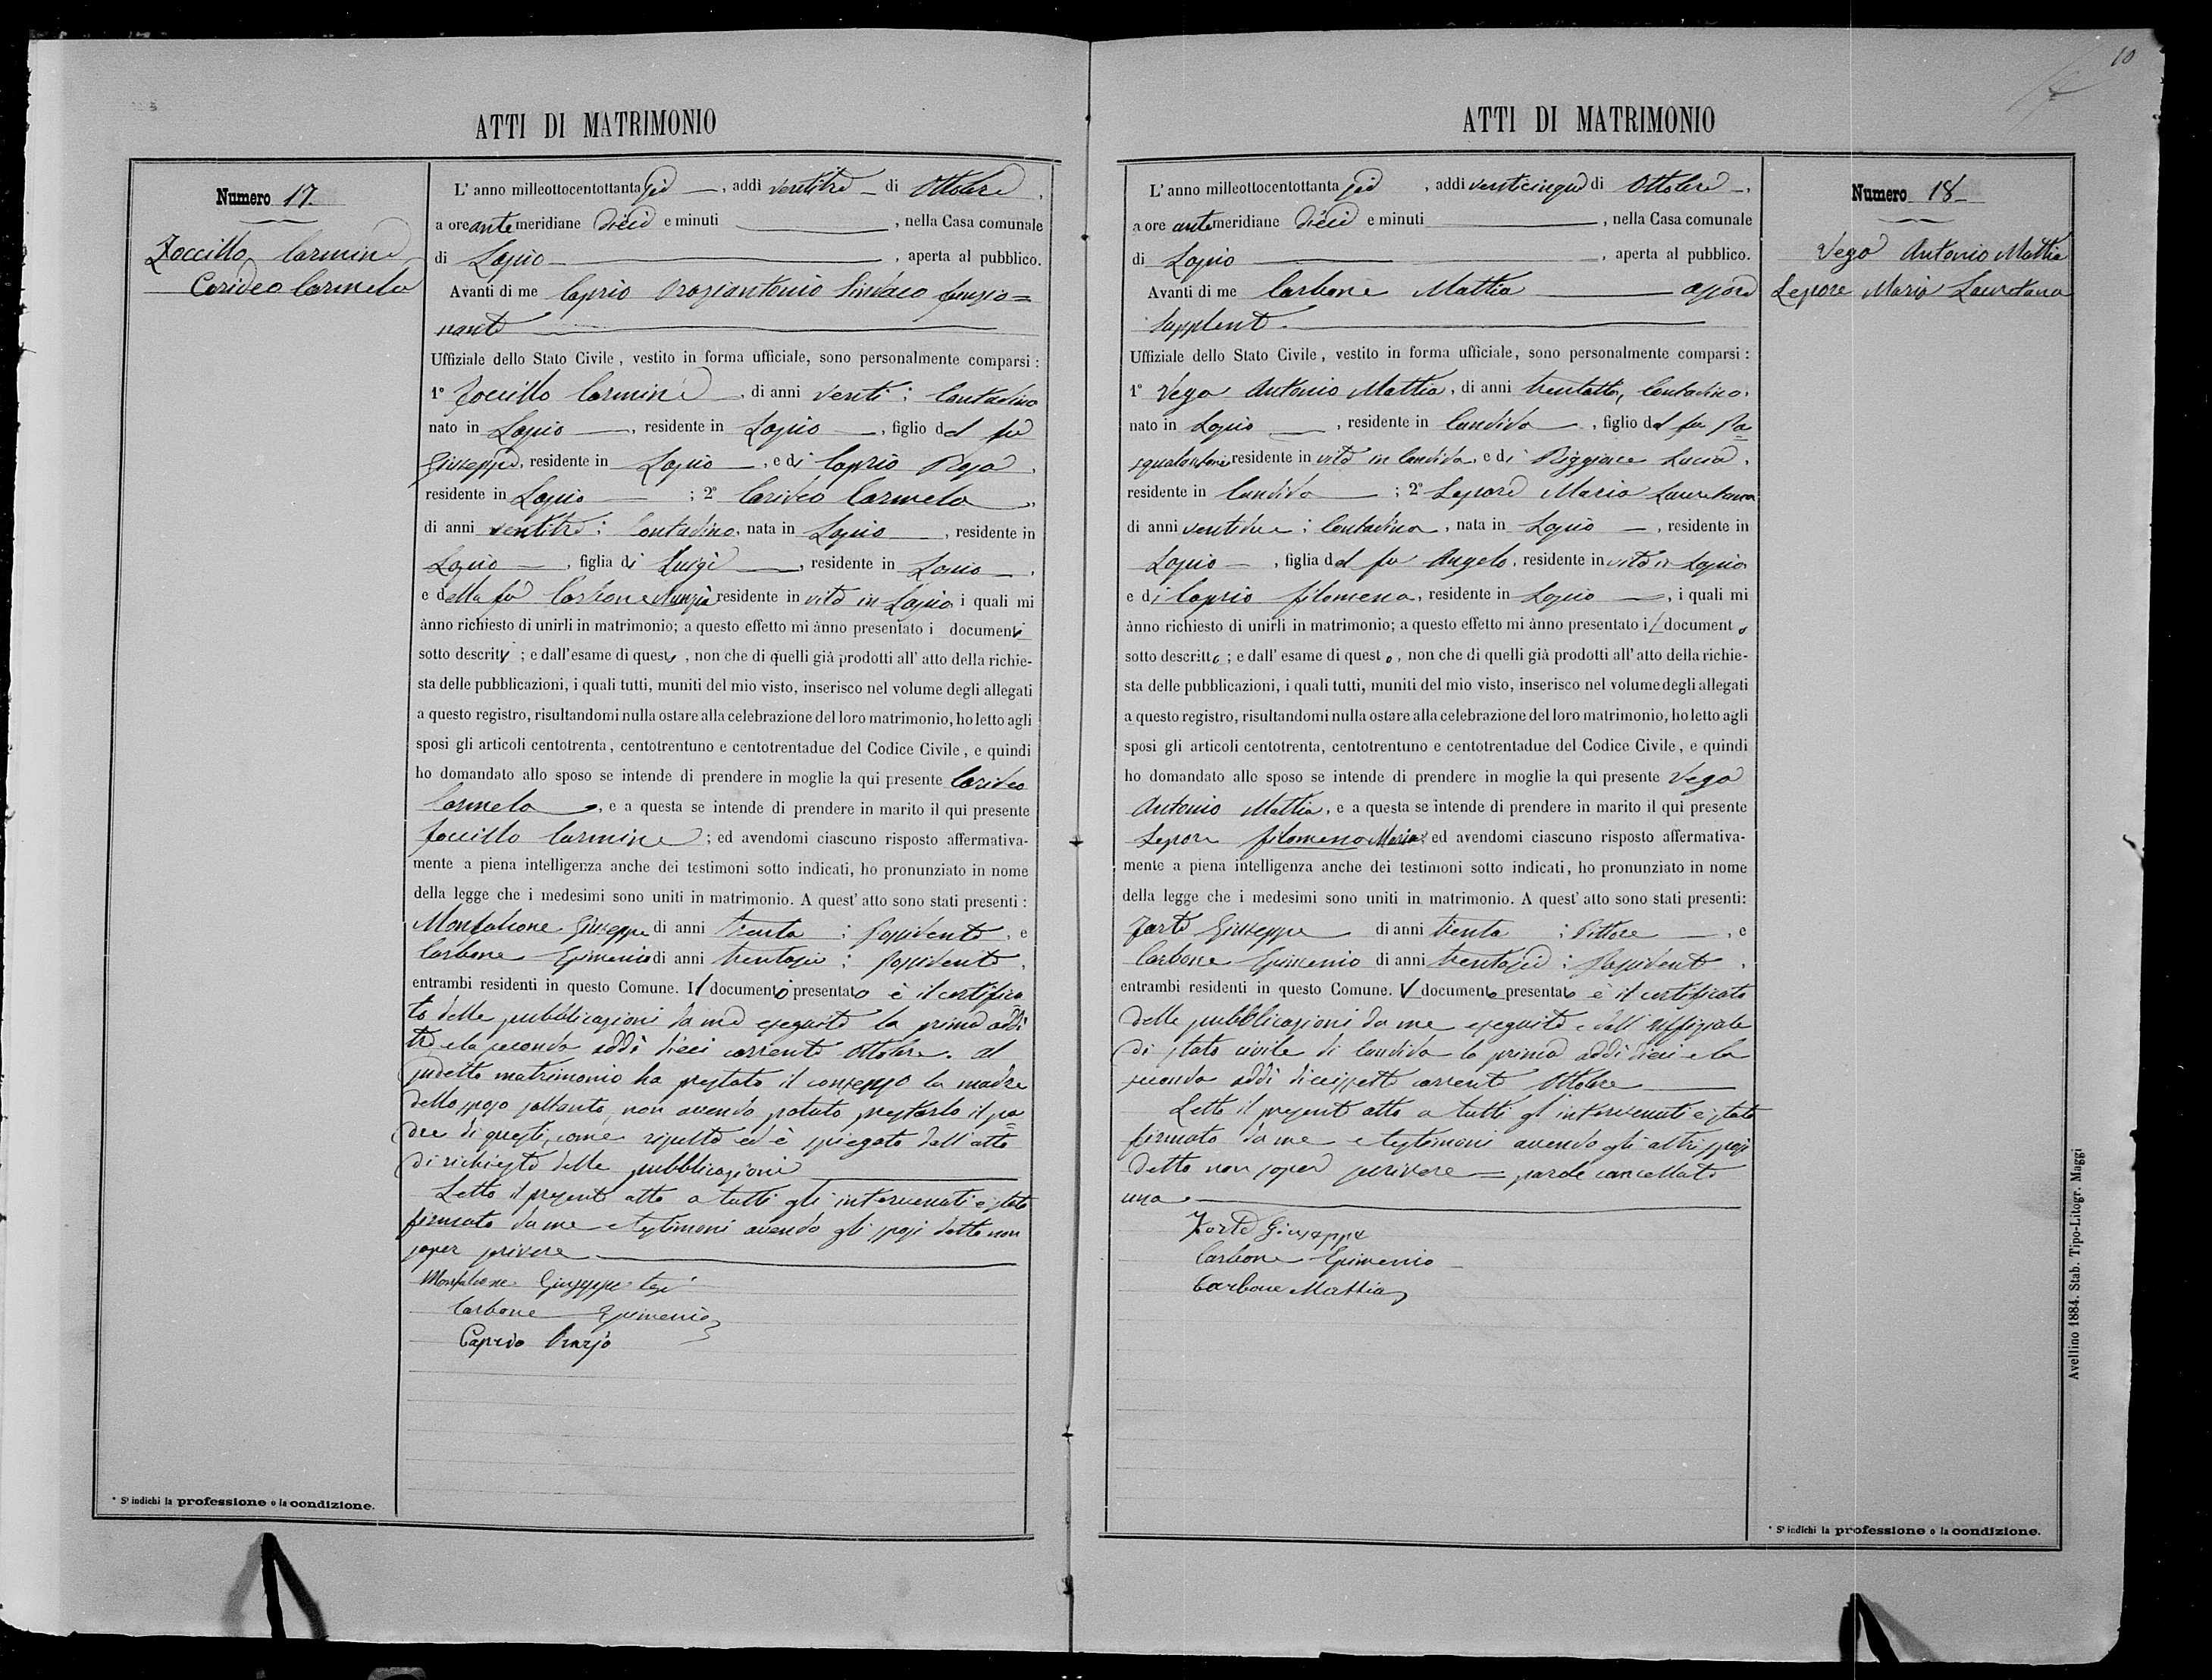 10
ATTI DI MATRIMONIO
Numero 17.
Zoccillo Carmine
Carideo Carmela
L'anno milleottocentottanta sei, addì ventitre di Ottobre,
a ore ante meridiane dieci e minuti, nella Casa comunale
di Lapio, aperta al pubblico.
Avanti di me Caprio Oraziantonio Sindaco funzio=
nante
Uffiziale dello Stato Civile, vestito in forma ufficiale, sono personalmente comparsi:
1° Zoccillo Carmine, di anni venti; Contadino
nato in Lapio, residente in Lapio, figlio del fu
Giuseppe, residente in Lapio, e di Caprio Rosa,
residente in Lapio; 2° Carideo Carmela,
di anni ventitre; Contadina, nata in Lapio, residente in
Lapio, figlia di Luigi, residente in Lapio,
e della fu Carbone Nunzia residente in vita in Lapio, i quali mi
ànno richiesto di unirli in matrimonio; a questo effetto mi ànno presentato i documenti
sotto descritti; e dall'esame di questi, non che di quelli già prodotti all'atto della richie-
sta delle pubblicazioni, i quali tutti, muniti del mio visto, inserisco nel volume degli allegati
a questo registro, risultandomi nulla ostare alla celebrazione del loro matrimonio, ho letto agli
sposi gli articoli centotrenta, centotrentuno e centotrentadue del Codice Civile, e quindi
ho domandato allo sposo se intende di prendere in moglie la qui presente Carideo
Carmela, e a questa se intende di prendere in marito il qui presente
Zoccillo Carmine; ed avendomi ciascuno risposto affermativa-
mente a piena intelligenza anche dei testimoni sotto indicati, ho pronunziato in nome
della legge che i medesimi sono uniti in matrimonio. A quest'atto sono stati presenti:
Monfalcone Giuseppe di anni trenta; possidente, e
Carbone Epimenio di anni trentasei; possidente,
entrambi residenti in questo Comune. Il documento presentato è il certifica
to delle pubblicazioni da me eseguite la prima addì
tre e la seconda addì dieci corrente Ottobre. Al
sudetto matrimonio ha prestato il consenso la madre
dello sposo soltanto, non avendo potuto prestarlo il pa=
dre di questi, come risulta ed è spiegato dall'atto
di richiesta delle pubblicazioni
Letto il presente atto a tutti gli intervenuti è stato
firmato da me e testimoni avendo gli sposi detto non
saper scrivere
Monfalcone Giuseppe tes.
Carbone Epimenio
Caprio Orazio
* S'indichi la professione o la condizione.
ATTI DI MATRIMONIO
Numero 18
Vega Antonio Mattia
Lepore Maria Lauretana
L'anno milleottocentottanta sei, addì venticinque di Ottobre,
a ore ante meridiane dieci e minuti, nella Casa comunale
di Lapio, aperta al pubblico.
Avanti di me Carbone Mattia assore
Supplente
Uffiziale dello Stato Civile, vestito in forma ufficiale, sono personalmente comparsi:
1° Vega Antonio Mattia, di anni trentotto, Contadino,
nato in Lapio, residente in Candida, figlio del fu Pa=
squalantonio residente in vita in Candida, e di Riggione Lucia,
residente in Candida; 2° Lepore Maria Lauretana
di anni ventidue; Contadina, nata in Lapio, residente in
Lapio, figlia del fu Angelo, residente in vita in Lapio
e di Caprio Filomena, residente in Lapio, i quali mi
ànno richiesto di unirli in matrimonio; a questo effetto mi ànno presentato il documento
sotto descritto; e dall'esame di questo, non che di quelli già prodotti all'atto della richie-
sta delle pubblicazioni, i quali tutti, muniti del mio visto, inserisco nel volume degli allegati
a questo registro, risultandomi nulla ostare alla celebrazione del loro matrimonio, ho letto agli
sposi gli articoli centotrenta, centotrentuno e centotrentadue del Codice Civile, e quindi
ho domandato allo sposo se intende di prendere in moglie la qui presente Vega
Antonio Mattia, e a questa se intende di prendere in marito il qui presente
Lepore Filomena Maria; ed avendomi ciascuno risposto affermativa-
mente a piena intelligenza anche dei testimoni sotto indicati, ho pronunziato in nome
della legge che i medesimi sono uniti in matrimonio. A quest'atto sono stati presenti:
Forte Giuseppe di anni trenta; Pittore, e
Carbone Epimenio di anni trentasei; Possidente,
entrambi residenti in questo Comune. Il documento presentato è il certificato
delle pubblicazioni da me eseguite e dall'Uffiziale
di stato civile di Candida la prima addì dieci e la
seconda addì diecissette corrente Ottobre
Letto il presente atto a tutti gl'intervenuti è stato
firmato da me e testimoni avendo gli altri sposi
detto non saper scrivere = parole cancellate
una.
Forte Giuseppe
Carbone Epimenio
Carbone Mattia
* S'indichi la professione o la condizione.
Avellino 1884. Stab. Tipo-Litogr. Maggi